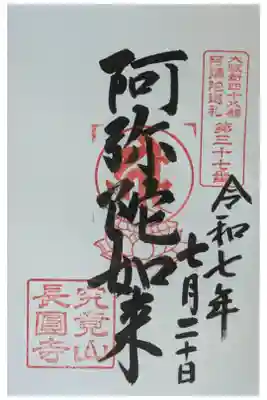 大阪新四十八願
阿彌陀巡礼 第三十七番
令和七年
七月二十日
阿弥陀如来
究竟山
長圓寺